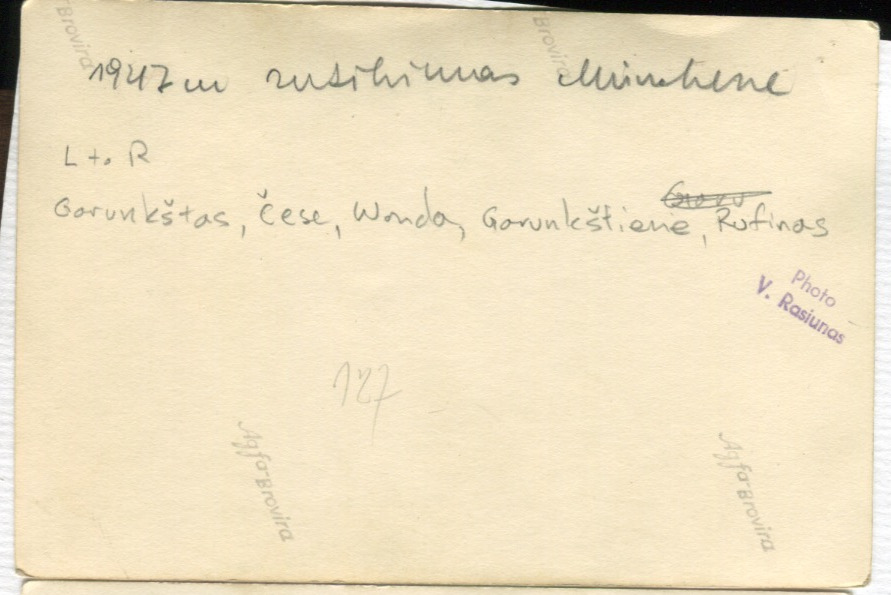 Brovira
Brovira
1947 m susitikimas Miunchene
L to R
Garunkštas, Čese, Wanda, Garunkštienė, Rufinas
Photo
V. Rasiunas
127
Agfa-Brovira
Agfa-Brovira